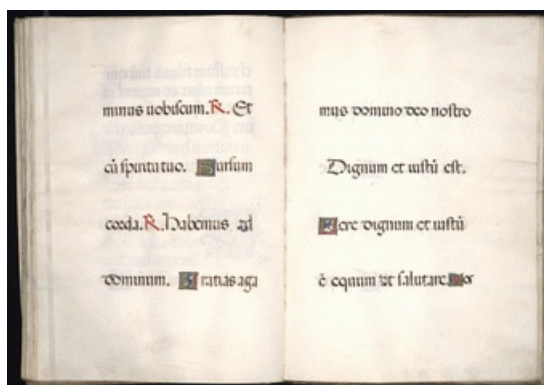 minus uobiscum. R. Et
cū spiritu tuo. Sursum
corda. R. Habemus ad
dominum. Gratias aga
mus domino deo nostro
Dignum et iustū est.
Vere dignum et iustū
ē equum et salutare.